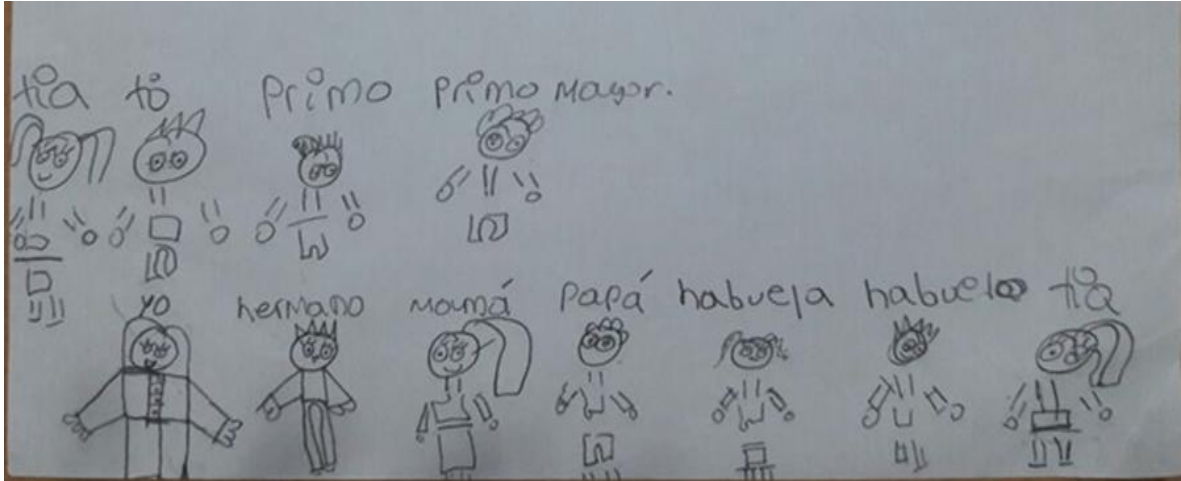 tia tio primo primo mayor.
yo hermano mamá papá habuela habuelo tia